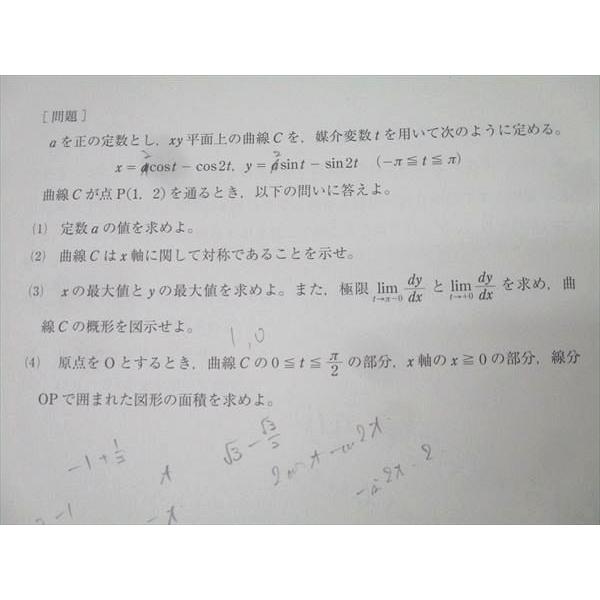 [問題]
aを正の定数とし,xy平面上の曲線Cを,媒介変数tを用いて次のように定める。
x=acost−cos2t, y=asint−sin2t (−π≦t≦π)
曲線Cが点P(1, 2)を通るとき,以下の問いに答えよ。
(1) 定数aの値を求めよ。
(2) 曲線Cはx軸に関して対称であることを示せ。
(3) xの最大値とyの最大値を求めよ。また,極限 lim t→π−0 dy/dx と lim t→+0 dy/dx を求め,曲
線Cの概形を図示せよ。
1,0
(4) 原点をOとするとき,曲線Cの0≦t≦π/2の部分,x軸のx≧0の部分,線分
OPで囲まれた図形の面積を求めよ。
√3−√3/2